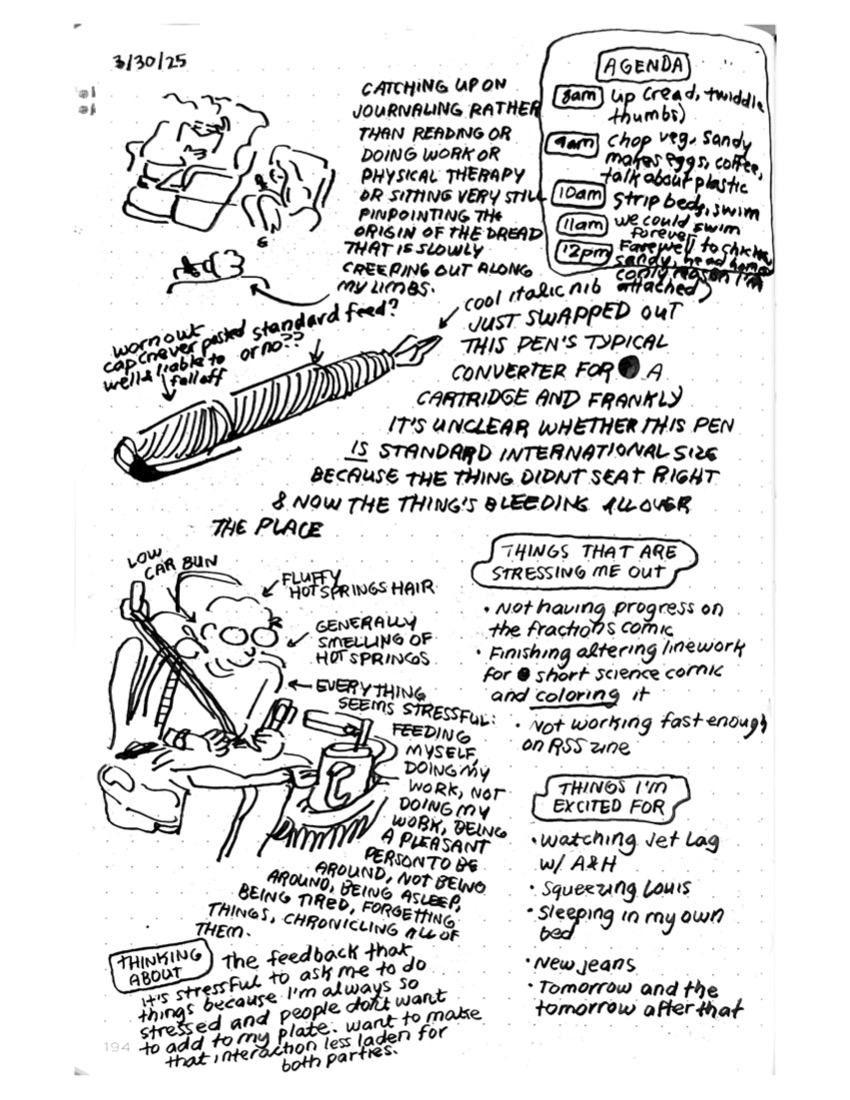 3/30/25
CATCHING UP ON
JOURNALING RATHER
THAN READING OR
DOING WORK OR
PHYSICAL THERAPY
OR SITTING VERY STILL
PINPOINTING THE
ORIGIN OF THE DREAD
THAT IS SLOWLY
CREEPING OUT ALONG
MY LIMBS.
AGENDA
8am up (read, twiddle
thumbs)
9am chop veg, sandy
makes eggs, coffee,
talk about plastic
10am strip beds, swim
11am we could swim
forever
12pm Farewell to
sandy, head home
(only reason I'm
attached)
cool italic nib
worn out
cap (never posted
well & liable to
fall off
standard feed?
or no??
JUST SWAPPED OUT
THIS PEN'S TYPICAL
CONVERTER FOR A
CARTRIDGE AND FRANKLY
IT'S UNCLEAR WHETHER THIS PEN
IS STANDARD INTERNATIONAL SIZE
BECAUSE THE THING DIDNT SEAT RIGHT
& NOW THE THING'S BLEEDING ALL OVER
THE PLACE
LOW
CAR BUN
FLUFFY
HOT SPRINGS HAIR
GENERALLY
SMELLING OF
HOT SPRINGS
EVERYTHING
SEEMS STRESSFUL:
FEEDING
MYSELF,
DOING MY
WORK, NOT
DOING MY
WORK, BEING
A PLEASANT
PERSON TO BE
AROUND, NOT BEING
AROUND, BEING ASLEEP,
BEING TIRED, FORGETTING
THINGS, CHRONICLING ALL OF
THEM.
THINGS THAT ARE
STRESSING ME OUT
• Not having progress on
the fractions comic
• Finishing altering linework
for short science comic
and coloring it
• Not working fast enough
on RSS zine
THINGS I'M
EXCITED FOR
• Watching Jet Lag
w/ A&H
• Squeezing Louis
• Sleeping in my own
bed
• New jeans
• Tomorrow and the
tomorrow after that
THINKING
ABOUT
The feedback that
it's stressful to ask me to do
things because I'm always so
stressed and people don't want
to add to my plate. want to make
that interaction less laden for
both parties.
194